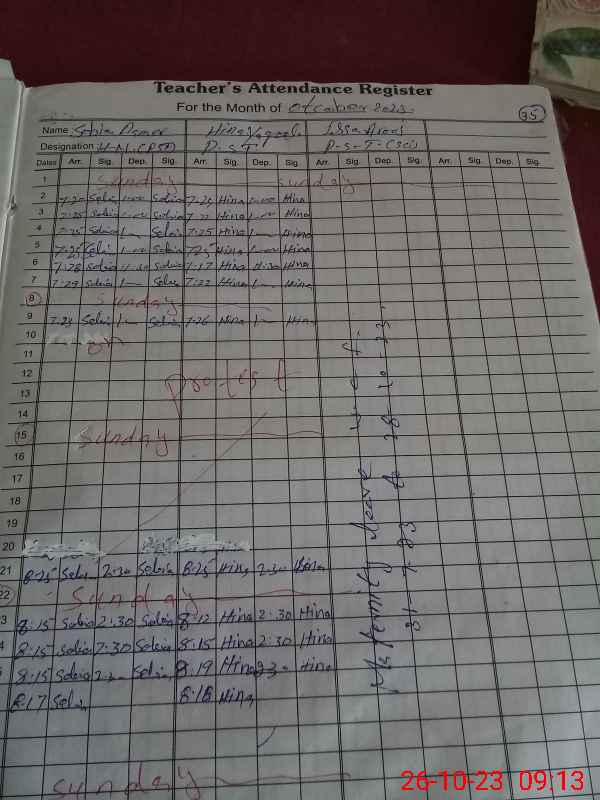 Teacher's Attendance Register
For the Month of October 2023.
35
Name Sobia Hina
Designation H.M (PST) P.S.T P-S-T-(Sci)
Dates Arr. Sig. Dep. Sig. Arr. Sig. Dep. Sig. Arr. Sig. Dep. Sig. Arr. Sig. Dep. Sig.
1 Sunday Sunday
2 7-20 Sobia 1-00 Sobia 7-25 Hina 1-00 Hina
3 7-25 Sobia 1-00 Sobia 7-22 Hina 1- Hina
4 7-25 Sobia 1- Sobia 7-25 Hina 1- Hina
5 7-25 Sobia 1-00 Sobia 7-25 Hina 1-00 Hina
6 7-28 Sobia Sobia 7-17 Hina Hina
7 7-29 Sobia 1- Sobia 7-22 Hina 1- Hina
8 Sunday
9 7-23 Sobia 1- Sobia 7-26 Hina 1- Hina
10 on
11
12 Protest
13
14
15 Sunday
16
17
18
19
20
21 8-25 Sobia 2-30 Sobia 8-25 Hina 2-30 Hina
22 Sunday
3 8-15 Sobia 2-30 Sobia 8-12 Hina 2-30 Hina
4 8-15 Sobia 2-30 Sobia 8-15 Hina 2-30 Hina
5 8-15 Sobia Sobia 8-19 Hina Hina
8-17 Sobia 8-18 Hina
Sunday
Maternity leave w.e.f.
31-7-23 to 28-10-23
26-10-23 09:13